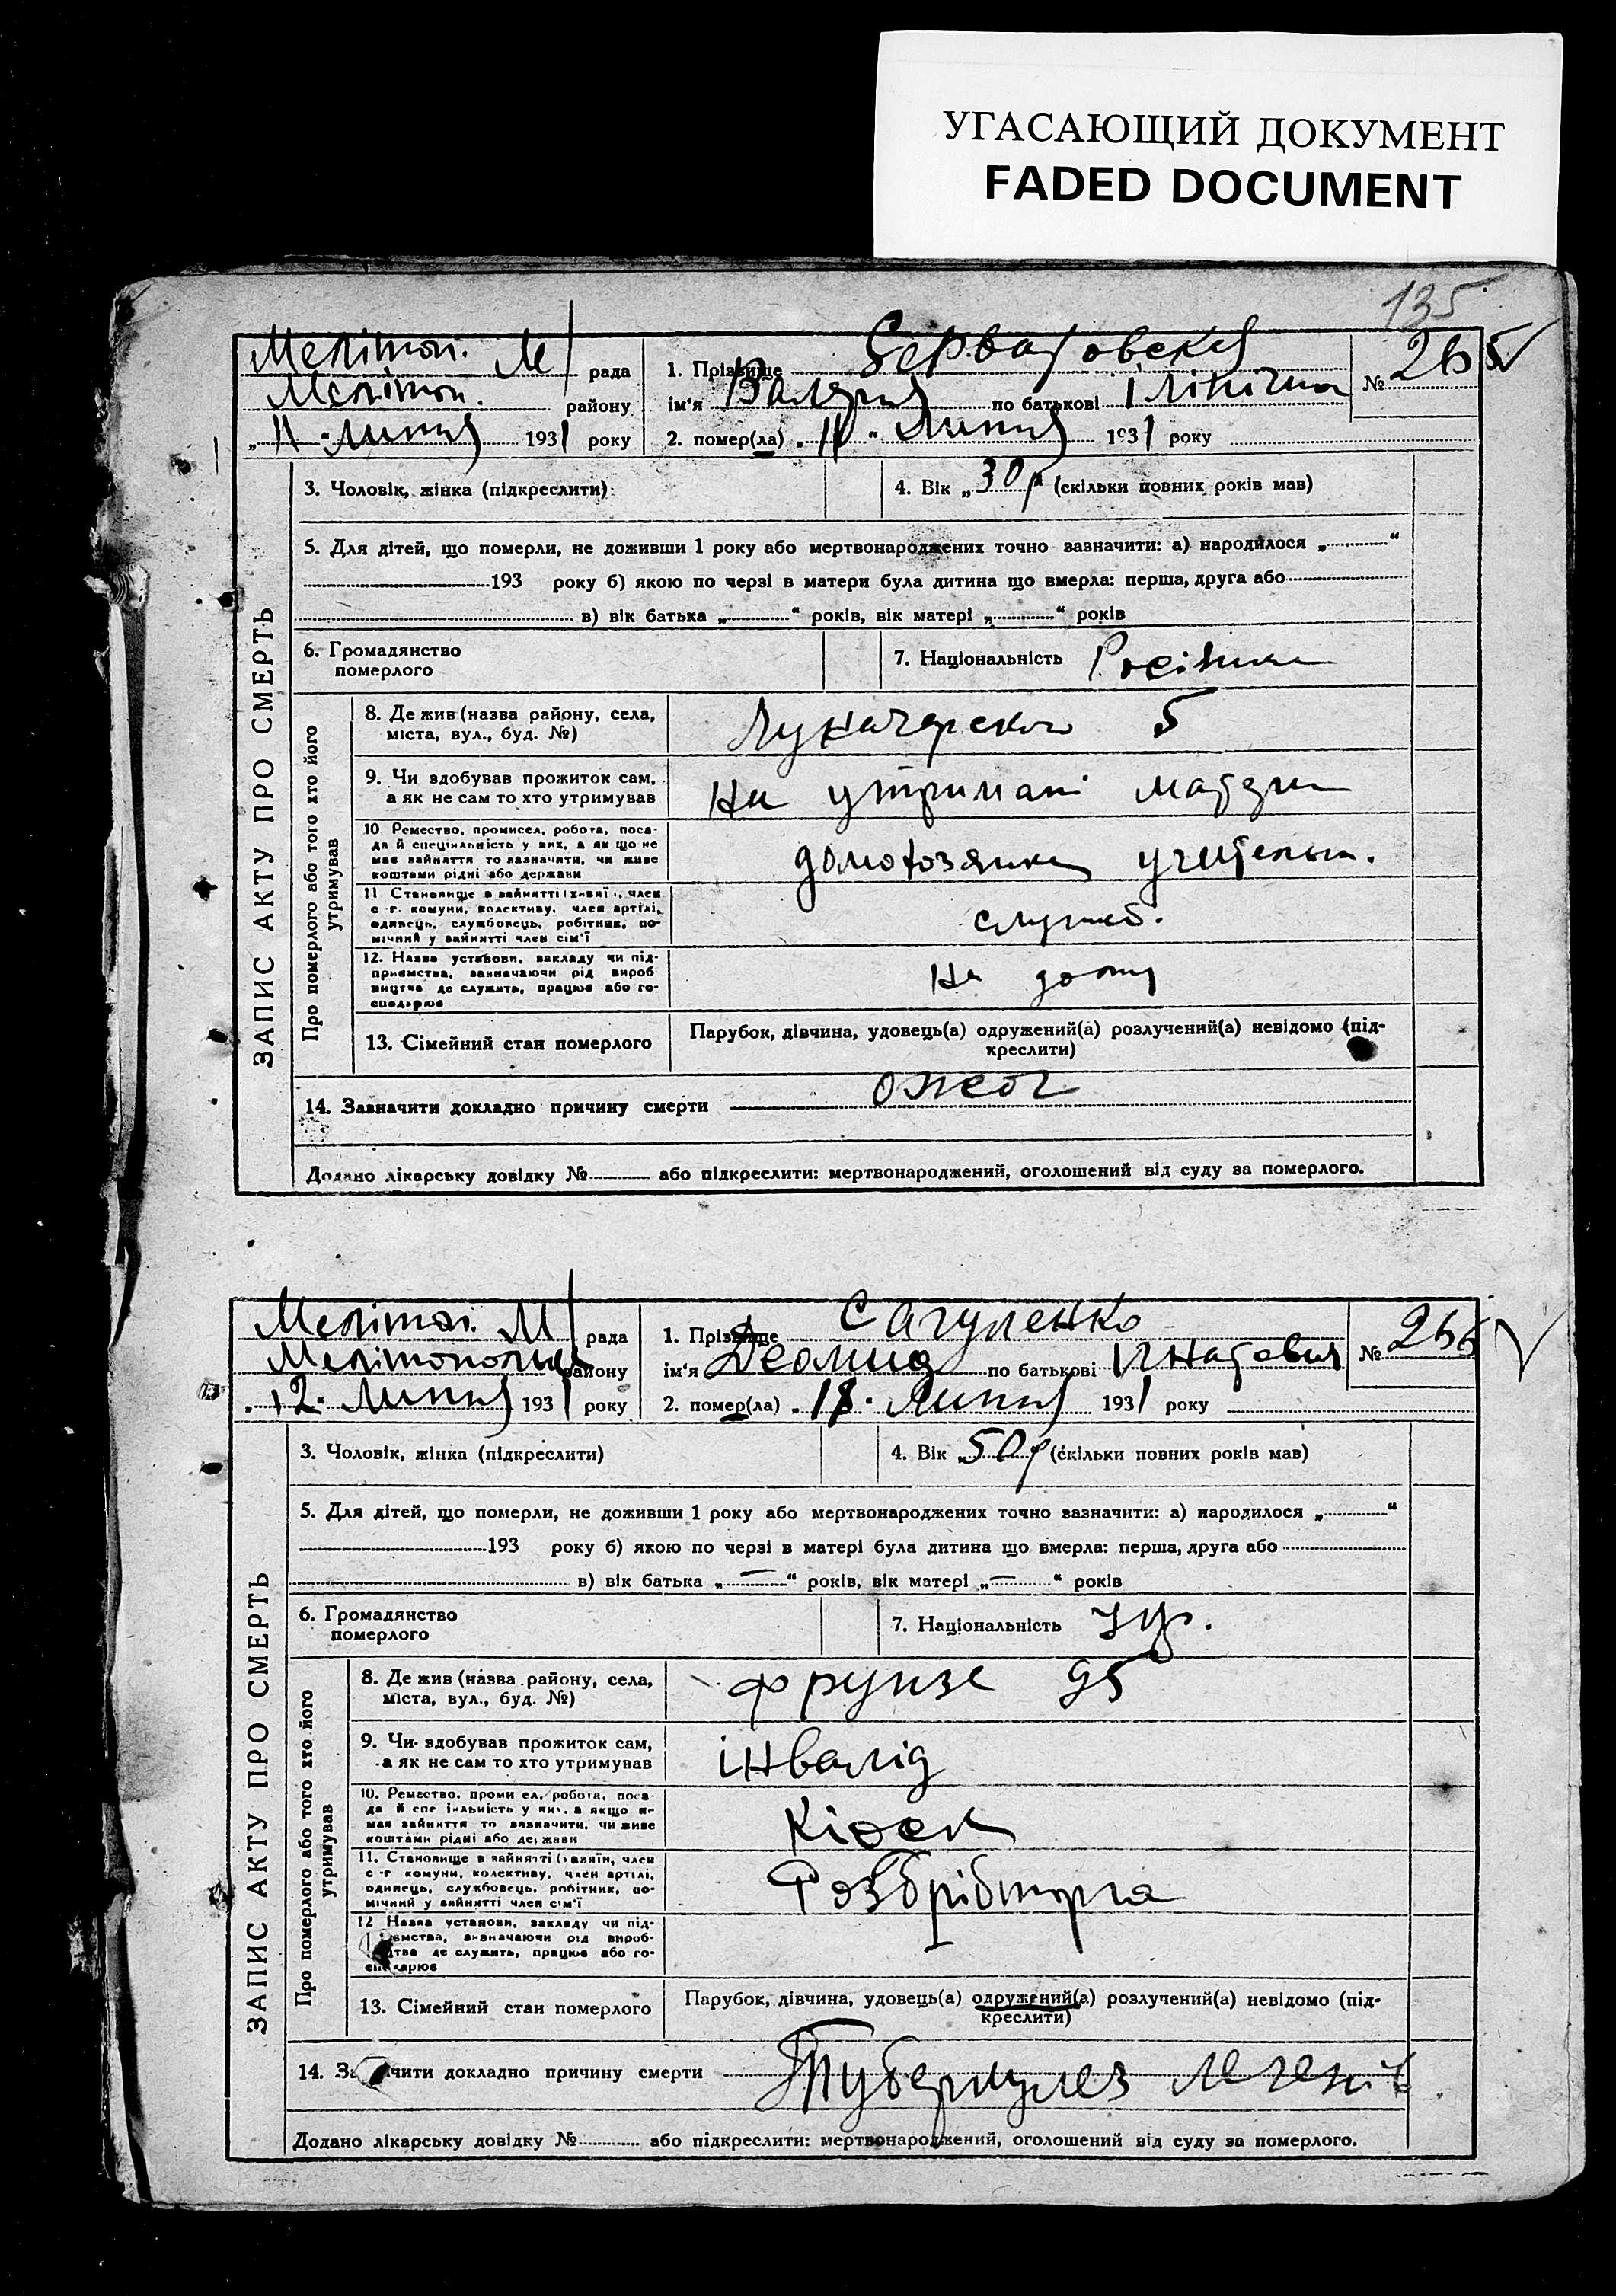 УГАСАЮЩИЙ ДОКУМЕНТ
FADED DOCUMENT
135
Меліт. М/ рада
Меліт. району
„11“ Липня 1931 року
1. Прізвище
ім'я Валерія по батькові
2. помер(ла) „11“ Липня 1931 року
№ 265
ЗАПИС АКТУ ПРО СМЕРТЬ
3. Чоловік, жінка (підкреслити)
4. Вік „30 р“ (скільки повних років мав)
5. Для дітей, що померли, не доживши 1 року або мертвонароджених точно зазначити: а) народилося „ “
193 року б) якою по черзі в матери була дитина що вмерла: перша, друга або
в) вік батька „ “ років, вік матері „ “ років
6. Громадянство
померлого
7. Національність Росіянка
Про померлого або того хто його
утримував
8. Де жив (назва району, села,
міста, вул., буд. №)
Луначарского 5
9. Чи здобував прожиток сам,
а як не сам то хто утримував
На утримані
10. Ремество, промисел, робота, поса-
да й спеціяльність у них, а як що не
має зайняття то зазначити, чи живе
коштами рідні або держави
домохозяйка
11. Становище в зайнятті (хазяїн, член
с.-г. комуни, колективу, член артілі,
одинець, службовець, робітник, по-
мічний у зайнятті член сім'ї
служб.
12. Назва установи, закладу чи під-
приємства, зазначаючи рід вироб
ництва де служить, працює або го-
сподарює
На дому
13. Сімейний стан померлого
Парубок, дівчина, удовець(а) одружений(а) розлучений(а) невідомо (під-
креслити)
14. Зазначити докладно причину смерти ожог
Додано лікарську довідку № або підкреслити: мертвонароджений, оголошений від суду за померлого.
Меліт. М/ рада
Мелітопольськ району
„12“ Липня 1931 року
1. Прізвище Сагуленко
ім'я Деомид по батькові Игнатович
2. помер(ла) „ “ Липня 1931 року
№ 266
ЗАПИС АКТУ ПРО СМЕРТЬ
3. Чоловік, жінка (підкреслити)
4. Вік „50 р“ (скільки повних років мав)
5. Для дітей, що померли, не доживши 1 року або мертвонароджених точно зазначити: а) народилося „ “
193 року б) якою по черзі в матері була дитина що вмерла: перша, друга або
в) вік батька „—“ років, вік матері „—“ років
6. Громадянство
померлого
7. Національність Укр.
Про померлого або того хто його
утримував
8. Де жив (назва району, села,
міста, вул., буд. №)
Фрунзе 95
9. Чи здобував прожиток сам,
а як не сам то хто утримував
інвалід
10. Ремество, промисел, робота, поса-
да й спеціяльність у них, а якщо не
має зайняття то зазначити, чи живе
коштами рідні або держави
Кіоск
11. Становище в зайнятті (хазяїн, член
с-г комуни, колективу, член артілі,
одинець, службовець, робітник, по-
мічний у зайнятті член сім'ї
12 Назва установи, закладу чи під-
приємства, зазначаючи рід вироб-
ництва де служить, працює або го-
сподарює
13. Сімейний стан померлого
Парубок, дівчина, удовець(а) одружений(а) розлучений(а) невідомо (під-
креслити)
14. Зазначити докладно причину смерти Туберкулез легенів
Додано лікарську довідку № або підкреслити: мертвонароджений, оголошений від суду за померлого.